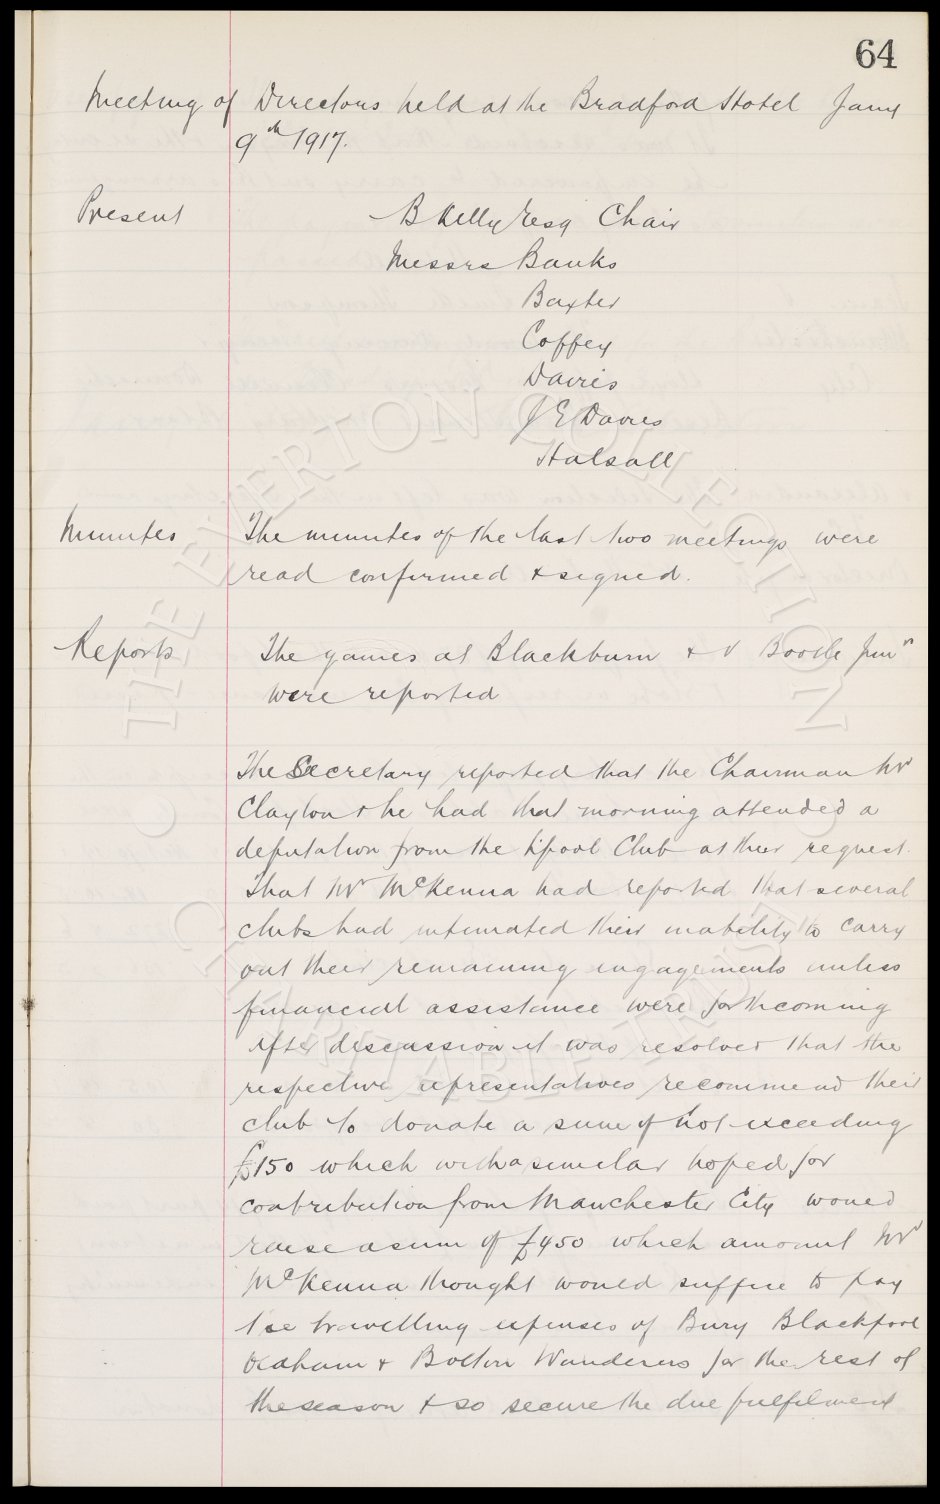 64
Meeting of Directors held at the Bradford Hotel Jany
9th 1917.
Present B Kelly Esq Chair
Messrs Banks
Baxter
Coffey
Davies
J E Davies
Halsall
Minutes The minutes of the last two meetings were
read confirmed & signed.
Reports The games at Blackburn & v Bootle Junr
were reported
The Secretary reported that the Chairman Mr
Clayton & he had that morning attended a
deputation from the L'pool Club at their request.
That Mr McKenna had reported that several
clubs had intimated their inability to carry
out their remaining engagements unless
financial assistance were forthcoming
After discussion it was resolved that the
respective representatives recommend their
club to donate a sum of not exceeding
£150 which with a similar hoped for
contribution from Manchester City would
raise a sum of £450 which amount Mr
McKenna thought would suffice to pay
the travelling expenses of Bury Blackpool
Oldham & Bolton Wanderers for the rest of
the season & so secure the due fulfilment
THE EVERTON COLLECTION
CHARITABLE TRUST